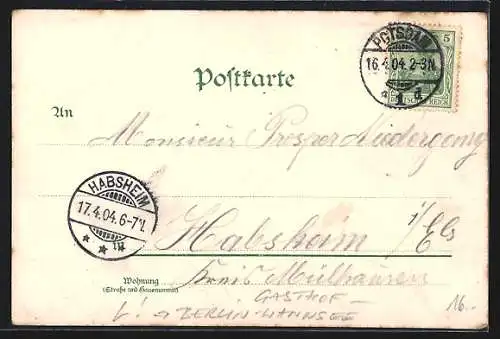 POTSDAM
16.4.04.2-3N.
* 1 d
5
DEUTSCHES REICH
Postkarte
An
Monsieur Prosper Niedergang
HABSHEIM
17.4.04.6-7N.
* * *
Habsheim i/Els
Kreis Mülhausen
Wohnung
(Straße und Hausnummer)
GASTHOF –
L! → BERLIN-WANNSEE
16.-